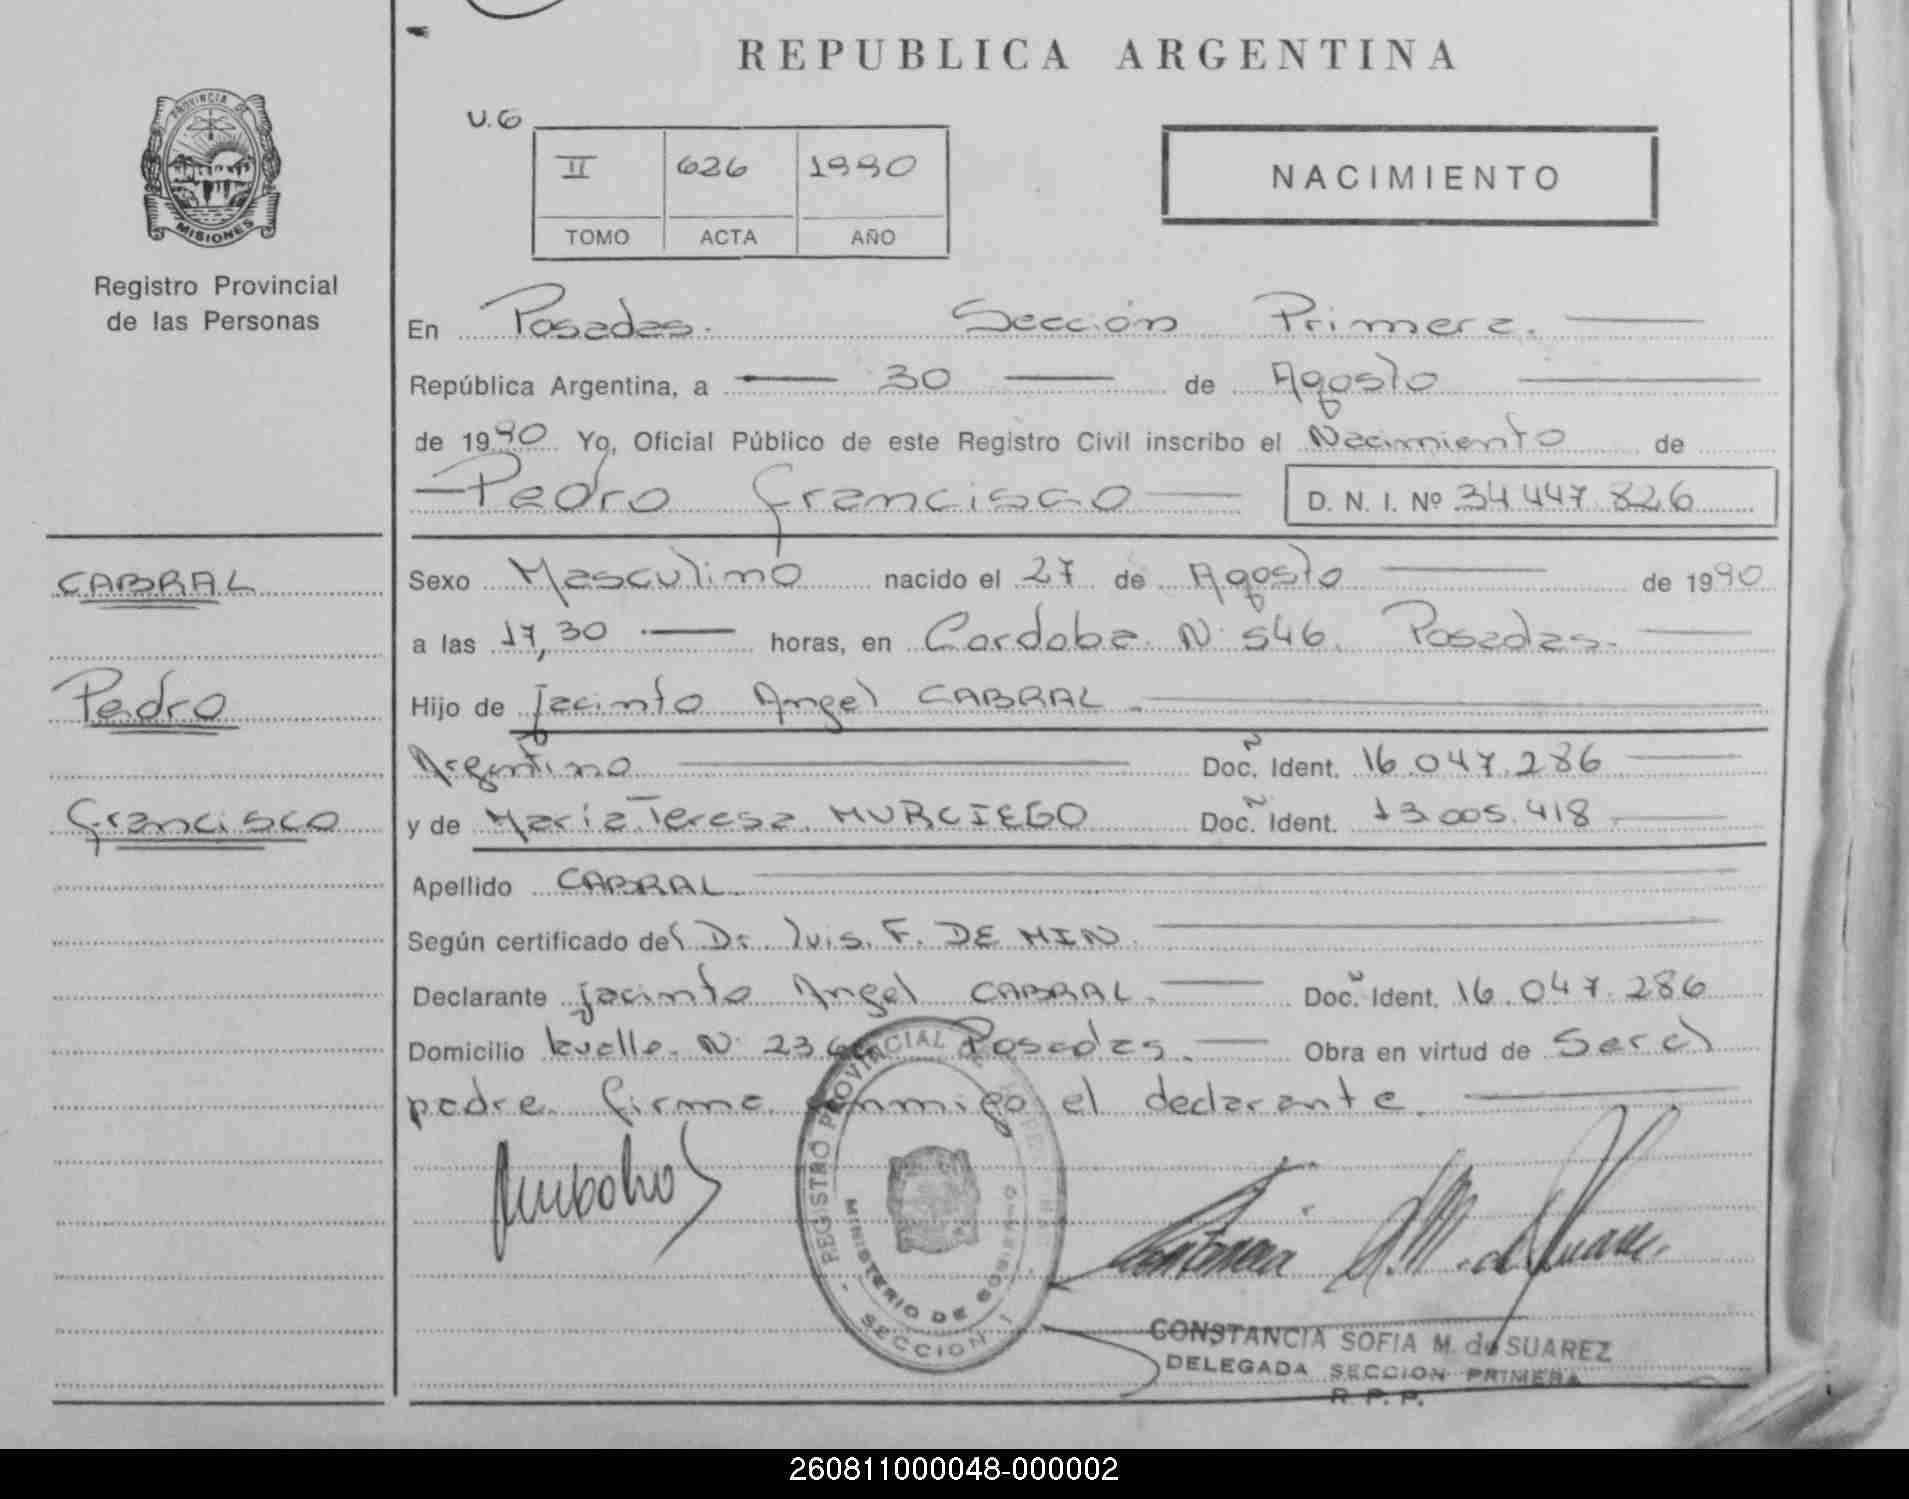 REPUBLICA ARGENTINA
U.6
II 626 1990
TOMO ACTA AÑO
NACIMIENTO
PROVINCIA DE
MISIONES
Registro Provincial
de las Personas
En Posadas. Sección Primera.
República Argentina, a 30 de Agosto
de 1990 Yo, Oficial Público de este Registro Civil inscribo el Nacimiento de
Pedro Francisco D. N. I. Nº 34 447.826
CABRAL
Pedro
Francisco
Sexo Masculino nacido el 27 de Agosto de 1990
a las 17,30 horas, en Cordoba N: 546. Posadas.
Hijo de Jacinto Angel CABRAL.
Argentino Doc. Ident. 16.047.286
y de María Teresa MURCIEGO Doc. Ident. 13.005.418
Apellido CABRAL.
Según certificado del Dr. Luis. F. DE MIN.
Declarante Jacinto Angel CABRAL. Doc. Ident. 16.047.286
Domicilio N: Posadas. Obra en virtud de Ser el
padre. firma conmigo el declarante.
REGISTRO PROVINCIAL DE
MINISTERIO DE GOBIERNO
SECCION I
CONSTANCIA SOFIA M. de SUAREZ
DELEGADA SECCION PRIMERA
R. P. P.
260811000048-000002